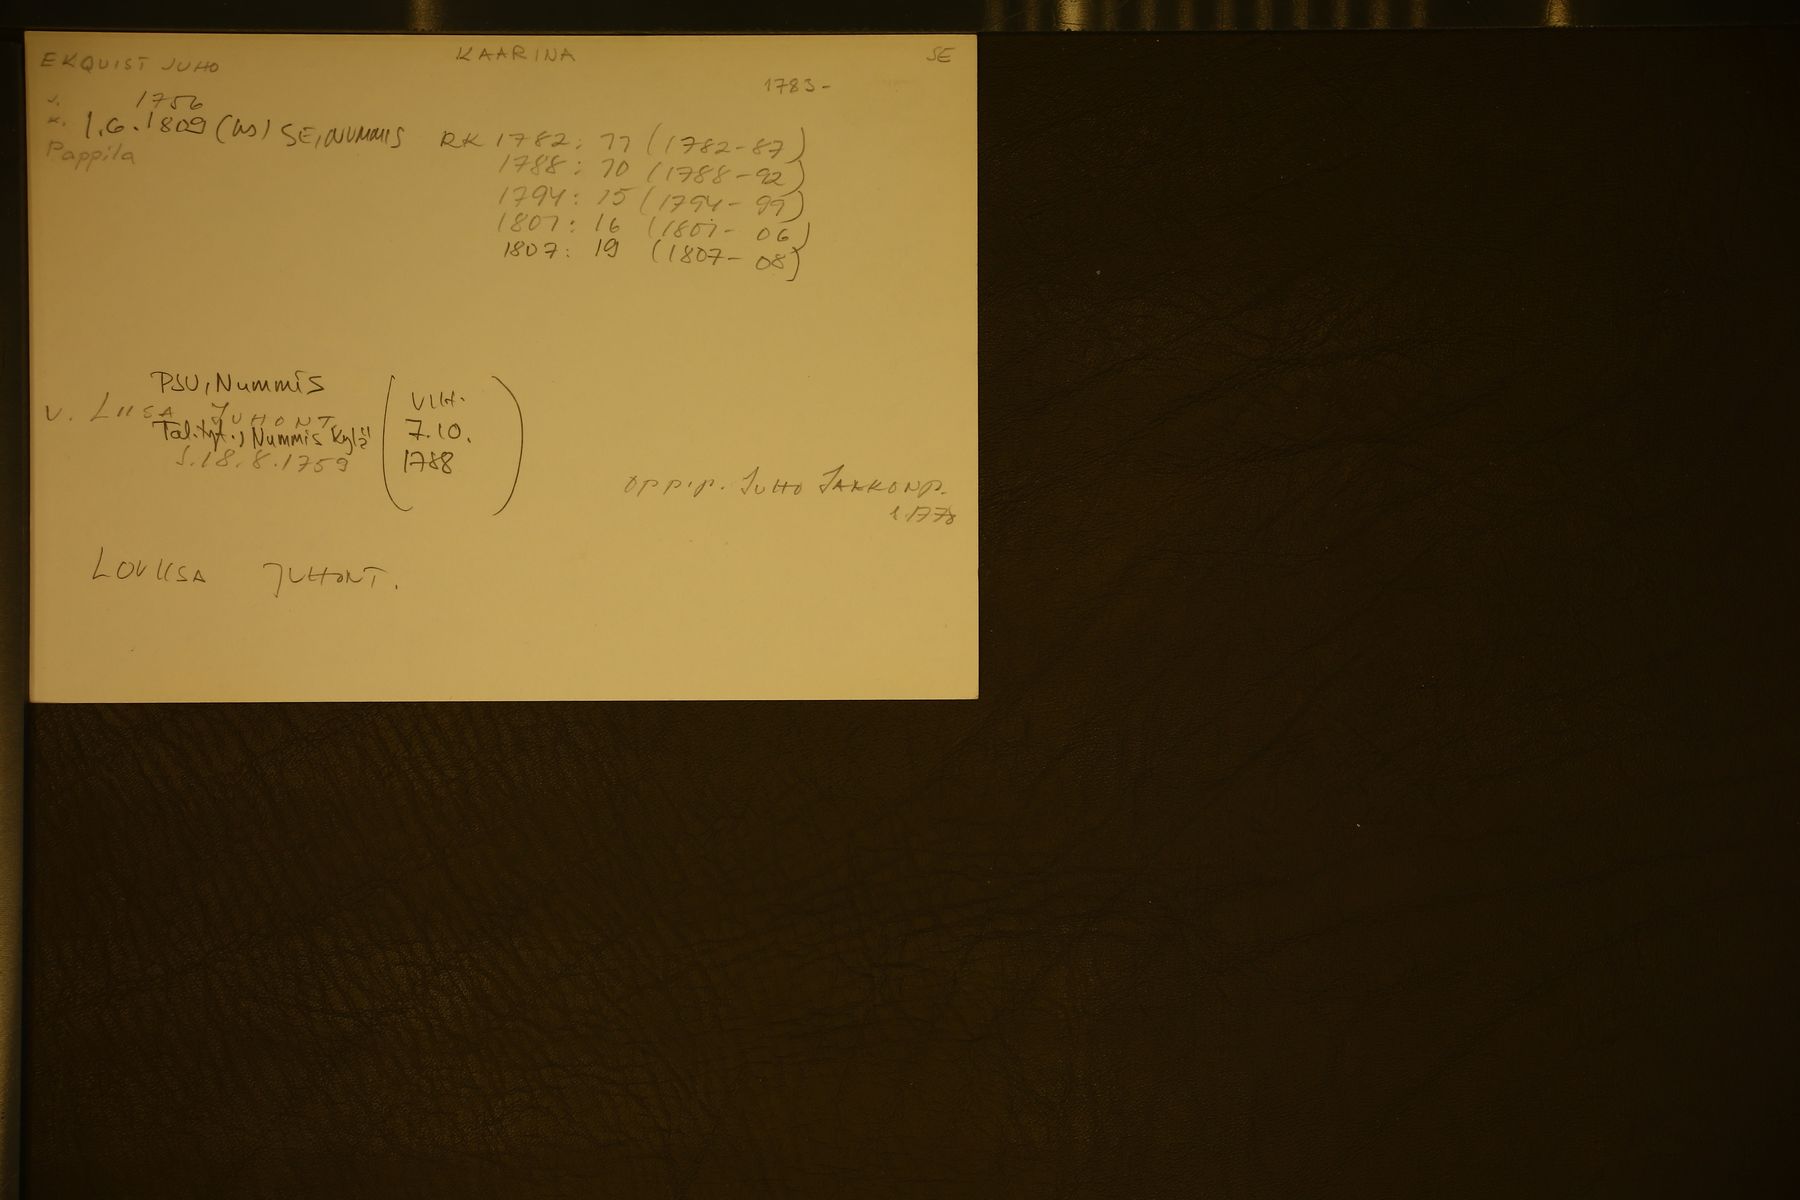 EKQUIST JUHO KAARINA SE
1783-
s. 1756
k. 1.6.1809 (hs) SE, NUMMIS RK 1782: 77 (1782-87)
Pappila
1788: 70 (1788-92)
1794: 15 (1794-99)
1801: 16 (1801-06)
1807: 19 (1807-08)
PSU, Nummis
V. LIISA JUHONT. (VIH.
Tal.tyt., Nummis kylä 7.10.
S. 18.8.1759 1788)
OPPIP. JUHO JAAKONP.
1778
LOVIISA JUHONT.